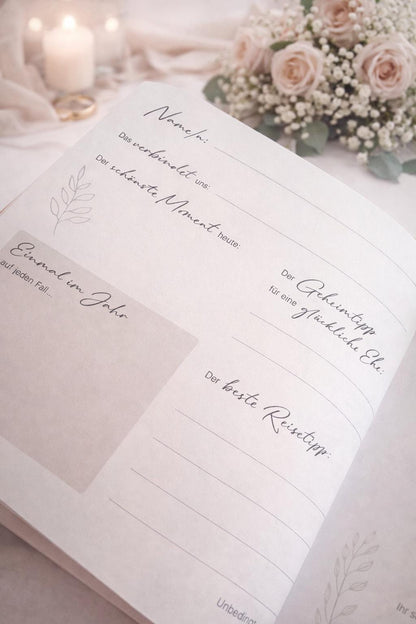 Name/n:
Das verbindet uns:
Der schönste Moment heute:
Einmal im Jahr
auf jeden Fall...
Der Geheimtipp
für eine glückliche Ehe:
Der beste Reisetipp: